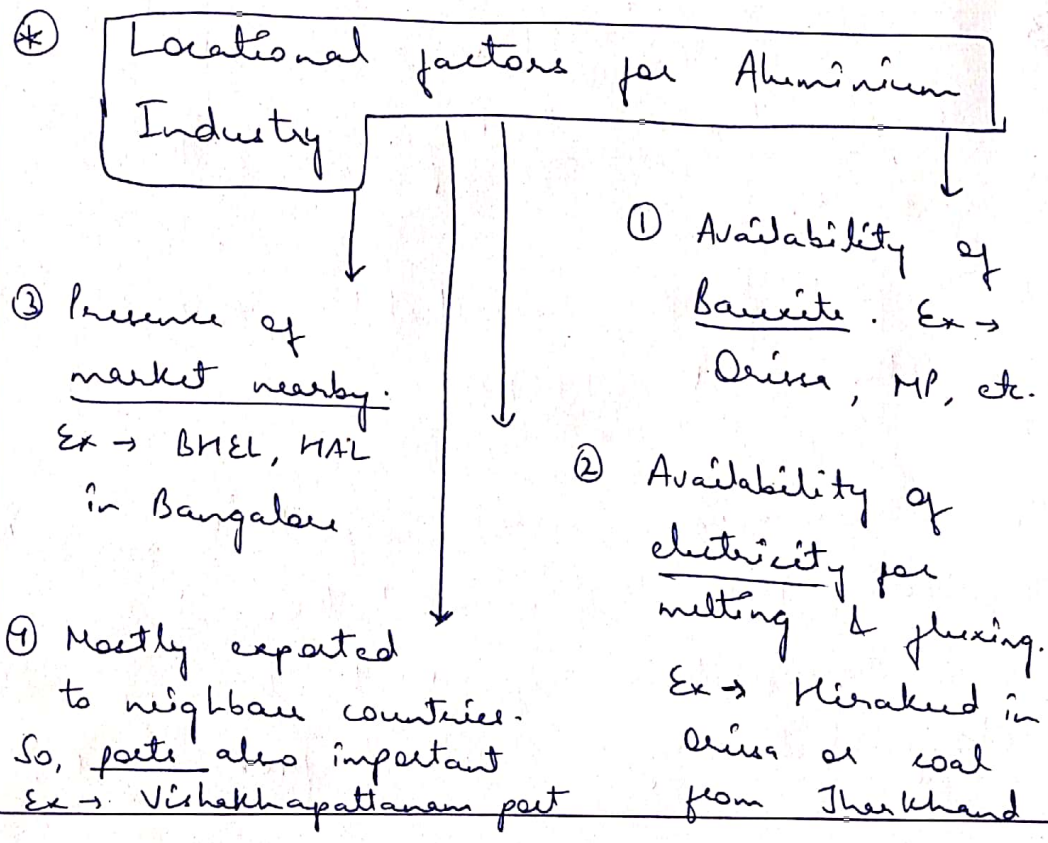 * Locational factors for Aluminium
Industry
① Availability of
Bauxite. Ex →
Orissa, MP, etc.
② Availability of
electricity for
melting & fluxing.
Ex → Hirakud in
Orissa or coal
from Jharkhand
③ Presence of
market nearby.
Ex → BHEL, HAL
in Bangalore
④ Mostly exported
to neighbour countries.
So, ports also important
Ex → Vishakhapattanam port